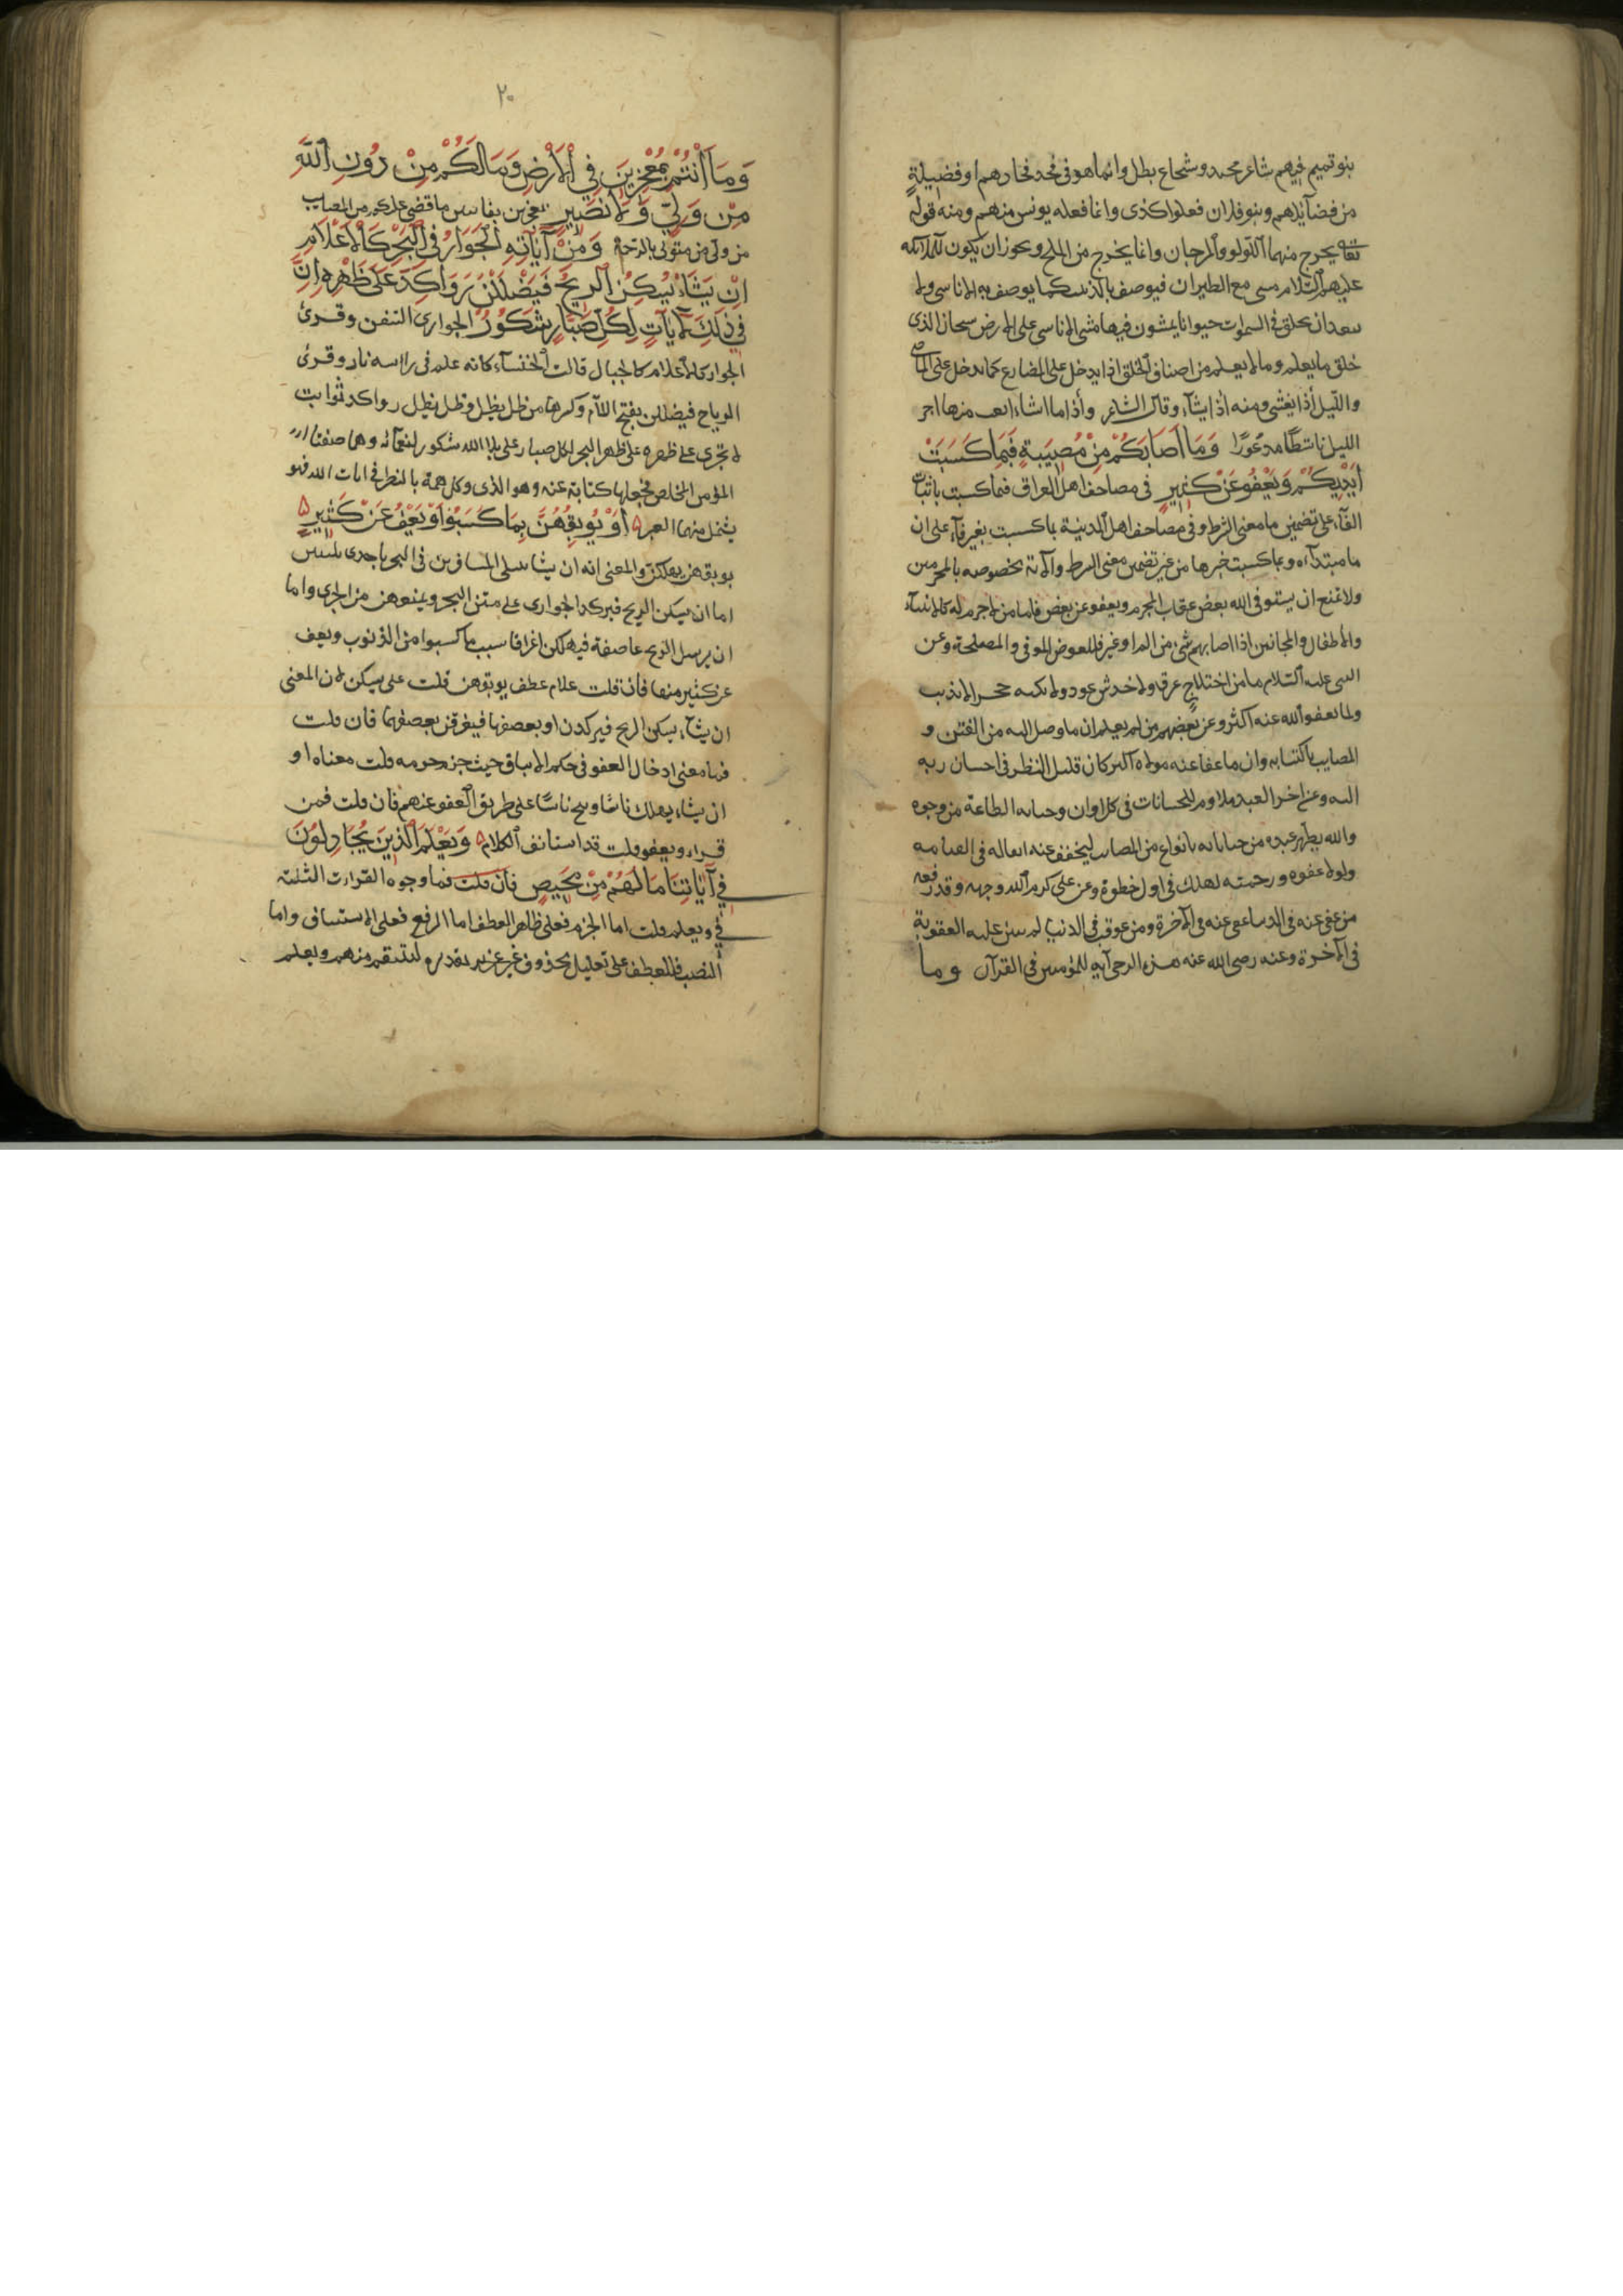 بنو تميم فيهم شاعر مجيد وشجاع بطل وانما هو في فخذ من افخاذهم او فضيلة
من فضايلهم وبنو فلان فعلوا كذى وانما فعله يونس منهم ومنه قوله
تعالى يخرج منهما اللولو والمرجان وانما يخرج من الملح ويجوز ان يكون للملائكه
عليهم السلام مسى مع الطيران فيوصف بالدبيب كما يوصف به الاناسى ولا
يبعد ان يخلق فى السموات حيوانا يمشون فيها مشى الاناسى على الارض سبحان الذى
خلق ما يعلم وما لا يعلم من اصناف الخلق اذا يدخل على المضارع كما تدخل على الماضى
والليل أذا يغشى ومنه اذا يشآء وقال الشاعر وأذا ما اشاء ابعث منها اخر
الليل ناشطا مذعورا وَمَا أصَابَكُمْ مِنْ مُصِيبَةٍ فَبِمَا كَسَبَتْ
أيْدِيكُمْ وَيَعْفُو عَنْ كَثِيرٍ فى مصاحف اهل العراق فبما كسبت باثبات
الفآء على تضمين ما معنى الشرط وفى مصاحف اهل المدينة بما كسبت بغير فآء على ان
ما مبتدآءه وبما كسبت خبرها من غير تضمين معنى الشرط والآية مخصوصه بالمجرمين
ولا يمتنع ان يستوفى الله بعض عقاب المجرم ويعفو عن بعض فاما من لا جرم له كالانبيآء
والاطفال والمجانين اذا اصابهم شىء من الم او غيره فللعوض الموفى والمصلحة وعن
النبى عليه السلام ما من اختلاج عرق ولا خدش عود ولا نكبه حجر الا بذنب
ولما يعفو الله عنه اكثر وعن بعضهم من لم يعلم ان ما وصل اليه من الفتن و
المصايب باكتسابه وان ما عفا عنه مولاه اكثر كان قليل النظر فى احسان ربه
اليه وعن اخر العبد ملازم للجنايات فى كل اوان وجناياته الطاعة من وجوه
والله يطهر عبده من جناياته بانواع من المصايب ليخفف عنه اثقاله فى القيامه
ولولا عفوه ورحمته لهلك فى اول خطوة وعن على كرم الله وجهه وقد رفعه
من عفى عنه فى الدنيا عفى عنه فى الآخرة ومن عوقب فى الدنيا لم يثن عليه العقوبة
فى الآخرة وعنه رضى الله عنه هذه ارجى آية للمؤمنين فى القرآن وما
٢٠
وَمَا أنْتُمْ بِمُعْجِزِينَ فِي الْأرْضِ وَمَا لَكُمْ مِنْ دُونِ اللَّهِ
مِنْ وَلِيٍّ وَلَا نَصِيرٍ بمعجزين بفايتين ما قضى عليكم من المصايب
من ولى من متولى بالرحمة وَمِنْ آيَاتِهِ الْجَوَارُ فِي الْبَحْرِ كَالْأعْلَامِ
إنْ يَشَأْ يُسْكِنُ الرِيحَ فَيَضْلَلْنَ رَوَاكِدَ عَلَى ظَهْرِهِ إنَّ
فِي ذَلِكَ لَآيَاتٍ لِكُلِّ صَبَّارٍ شَكُورٍ الجوارى السفن وقرئ
الجوار كالأعلام كالجبال قالت الخنسآء كانه علم فى رأسه نار وقرئ
الرياح فيضللن بفتح اللآم وكسرها من ظل يظل وظل يظل رواكد ثوابت
لا تجرى على ظهره على ظهر البحر لكل صبار على بلاء الله شكور لنعمائه وهما صفتا
المؤمن المخلص فجعلهما كناية عنه وهو الذى وكل همه بالنظر فى ايات الله فهو
يستمل منها العبر أوْ يُوبِقْهُنَّ بِمَا كَسَبُوا وَيَعْفُ عَنْ كَثِيرٍ
يوبقهن يهلكهن والمعنى انه ان يشا يبتلى المسافرين فى البحر باحدى بليتين
اما ان يسكن الريح فيركد الجوارى على متن البحر ويمنعهن من الجرى واما
ان يرسل الريح عاصفة فيهلكن اغراقا بسبب ما كسبوا من الذنوب ويعف
عن كثير منها فان قلت علام عطف يوبقهن قلت على يسكن لان المعنى
ان يشآء يسكن الريح فيركدن او يعصفها فيغرقن بعصفها فان قلت
فما معنى ادخال العفو فى حكم الايباق حيث جزم جزمه قلت معناه او
ان يشاء يهلك ناسا وينج ناسا على طريق العفو عنهم فان قلت فمن
قراء ويعفو قلت قد استانف الكلام وَيَعْلَمَ الَّذِينَ يُجَادِلُونَ
فِي آيَاتِنَا مَا لَهُمْ مِنْ مَحِيصٍ فان قلت فما وجوه القراءت الثلثة
فى ويعلم قلت اما الجزم فعلى ظاهر العطف اما الرفع فعلى الاستيناف واما
النصب فللعطف على تعليل محذوف غير عزيز تقديره لينتقم منهم ويعلم